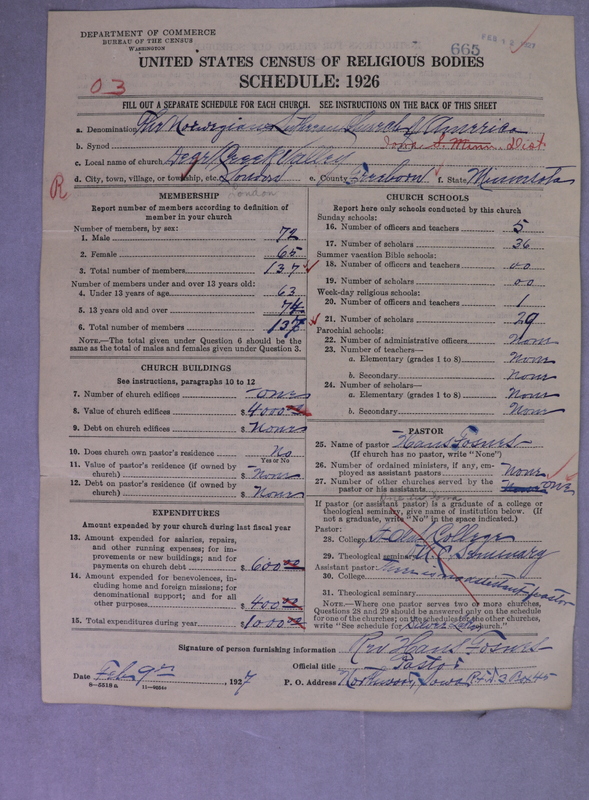 DEPARTMENT OF COMMERCE
BUREAU OF THE CENSUS
WASHINGTON
665
UNITED STATES CENSUS OF RELIGIOUS BODIES
03
SCHEDULE: 1926
FILL OUT A SEPARATE SCHEDULE FOR EACH CHURCH. SEE INSTRUCTIONS ON THE BACK OF THIS SHEET
a. Denomination The Norwegian Lutheran Church of America
b. Synod Iowa S. Minn. Dist.
c. Local name of church Deer Creek Valley
d. City, town, village, or township, etc. London e. County Freeborn f. State Minnesota
R
London
MEMBERSHIP
Report number of members according to definition of
member in your church
Number of members, by sex:
1. Male 72
2. Female 65
3. Total number of members 137
Number of members under and over 13 years old:
4. Under 13 years of age 63
5. 13 years old and over 74
6. Total number of members 137
NOTE.—The total given under Question 6 should be the
same as the total of males and females given under Question 3.
CHURCH BUILDINGS
See instructions, paragraphs 10 to 12
7. Number of church edifices one
8. Value of church edifices $ 4000.00
9. Debt on church edifices $ None
10. Does church own pastor's residence No
Yes or No
11. Value of pastor's residence (if owned by
church) $ None
12. Debt on pastor's residence (if owned by
church) $ None
EXPENDITURES
Amount expended by your church during last fiscal year
13. Amount expended for salaries, repairs,
and other running expenses; for im-
provements or new buildings; and for
payments on church debt $ 600.00
14. Amount expended for benevolences, in-
cluding home and foreign missions; for
denominational support; and for all
other purposes $ 400.00
15. Total expenditures during year $ 1000.00
CHURCH SCHOOLS
Report here only schools conducted by this church
Sunday schools:
16. Number of officers and teachers 5
17. Number of scholars 36
Summer vacation Bible schools:
18. Number of officers and teachers 00
19. Number of scholars 00
Week-day religious schools:
20. Number of officers and teachers 1
21. Number of scholars 29
Parochial schools:
22. Number of administrative officers None
23. Number of teachers—
a. Elementary (grades 1 to 8) None
b. Secondary None
24. Number of scholars—
a. Elementary (grades 1 to 8) None
b. Secondary None
PASTOR
25. Name of pastor Hans Fosnes
(If church has no pastor, write "None")
26. Number of ordained ministers, if any, em-
ployed as assistant pastors None
27. Number of other churches served by the
pastor or his assistants None one
If pastor (or assistant pastor) is a graduate of a college or
theological seminary, give name of institution below. (If
not a graduate, write "No" in the space indicated.)
Pastor:
28. College St Olaf College
29. Theological seminary U.C. Seminary
Assistant pastor:
30. College
31. Theological seminary
NOTE.—Where one pastor serves two or more churches,
Questions 28 and 29 should be answered only on the schedule
for one of the churches; on the schedules for the other churches,
write "See schedule for Silver Lake church."
Signature of person furnishing information Rev Hans Fosnes
Official title Pastor
Date Feb 9th, 1927 P. O. Address Northwood, Iowa R. No. 3 Box 45
8—5518a 11—9054a